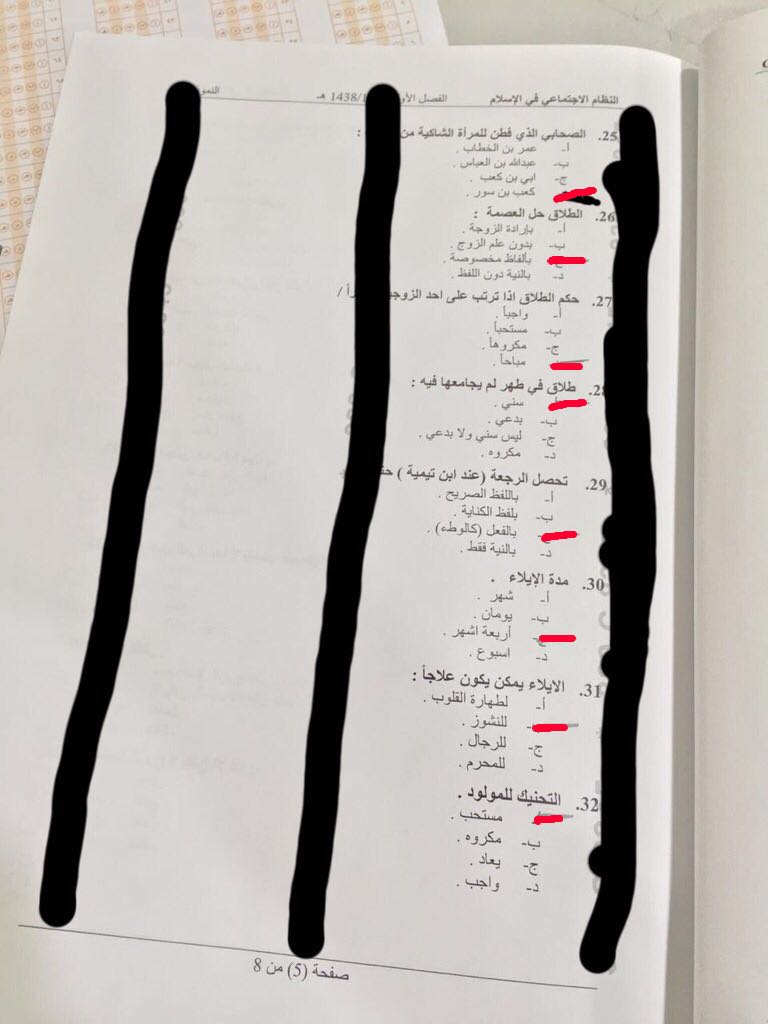 النظام الاجتماعي في الإسلام الفصل الأو 1438/1 هـ النمو
25. الصحابي الذي فطن للمرأة الشاكية من :
أ- عمر بن الخطاب .
ب- عبدالله بن العباس .
ج- ابي بن كعب .
كعب بن سور .
26. الطلاق حل العصمة :
أ- بإرادة الزوجة .
ب- بدون علم الزوج .
بألفاظ مخصوصة .
د- بالنية دون اللفظ .
27. حكم الطلاق اذا ترتب على احد الزوجي رأ /
أ- واجباً .
ب- مستحباً .
ج- مكروهاً .
مباحاً .
28. طلاق في طهر لم يجامعها فيه :
سني .
ب- بدعي .
ج- ليس سني ولا بدعي .
د- مكروه .
29. تحصل الرجعة (عند ابن تيمية )
أ- باللفظ الصريح .
ب- بلفظ الكناية .
بالفعل (كالوطء) .
د- بالنية فقط .
30. مدة الإيلاء .
أ- شهر .
ب- يومان .
أربعة اشهر .
د- اسبوع .
31. الايلاء يمكن يكون علاجاً :
أ- لطهارة القلوب .
للنشوز .
ج- للرجال .
د- للمحرم .
32. التحنيك للمولود .
مستحب .
ب- مكروه .
ج- يعاد .
د- واجب .
صفحة (5) من 8